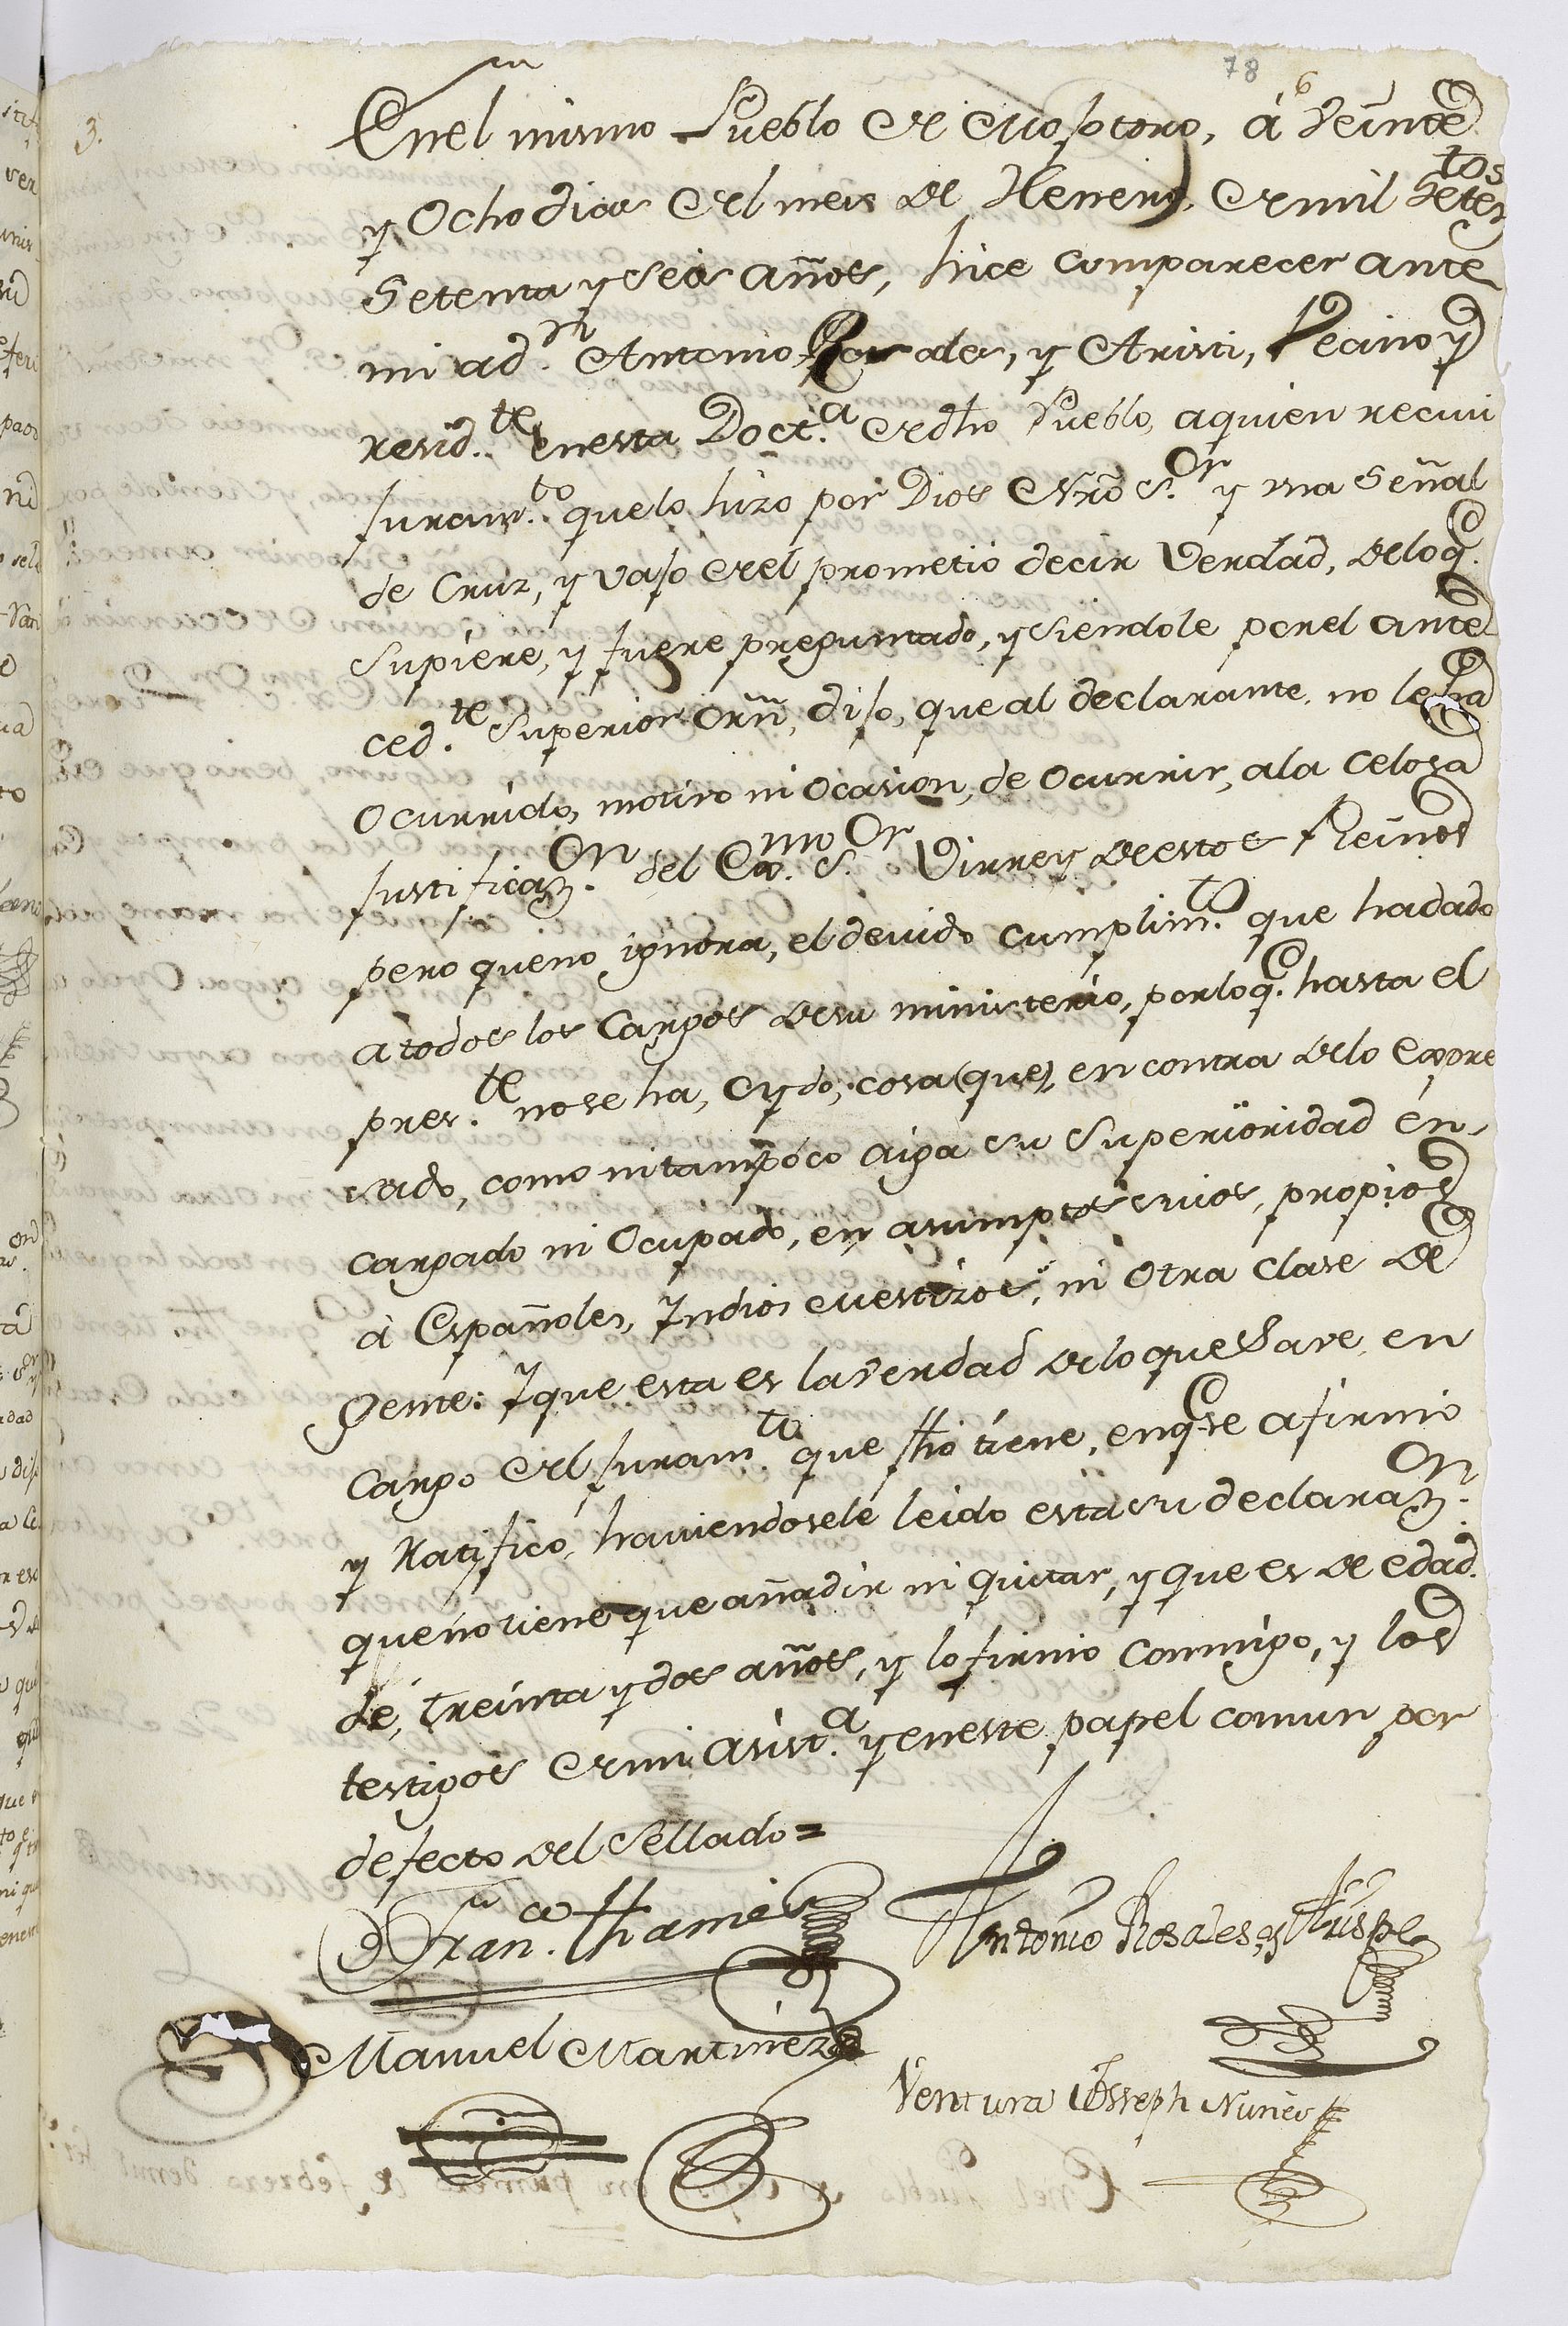 78
6
3.
En el mismo Pueblo de Mojotoro, á Veinte
y Ocho dias del mes de Henero, de mil Setetos
Setenta y seis años, hice comparecer ante
mi a dn. Antonio Rosales, y Aristi, Vecino y
resid.te enesta Doct.a de dho Pueblo, aquien recivi
juram.to quelo hizo por Dios Nro S.or y una Señal
de Cruz, y vajo del prometió decir Verdad, deloq.e
Supiere, y fuere preguntado, y siendole por el ante
ced.te Superior Orñ, dijo, que al declarante, no le ha
Ocurrido, motivo ni Ocasion, de Ocurrir, ala Celosa
justificaz.on del Ex.mo S.or Virrey deestos Reinos
pero queno ignora, el devido cumplim.to que hadado
á todos los Cargos desu ministerio, porloq.e hasta el
pres.te nose ha, Oydo, cosa (que) en contra delo Expre
sado, como nitampóco aiga su Superioridad én,
cargado ni Ocupado, en asumptos suios, propios
á Españoles, Indios Mestizos, ni Otra Clase de
Gente: Y que esta es la Verdad delo que Save, en
Cargo del juram.to que fho tiene, enq.e se afirmó
y Ratificó, haviendosele leido esta su declaraz.on
que no tiene que añadir ni quitar, y que es de edad
de, treinta y dos años, y lo firmó conmigo, y los
testigos de mi asist.a y eneste papel comun por
defecto del Sellado=
Fran.co Thames
Antonio Rosales, y Aristi
Manuel Martinez
Ventura Joseph Nuñes